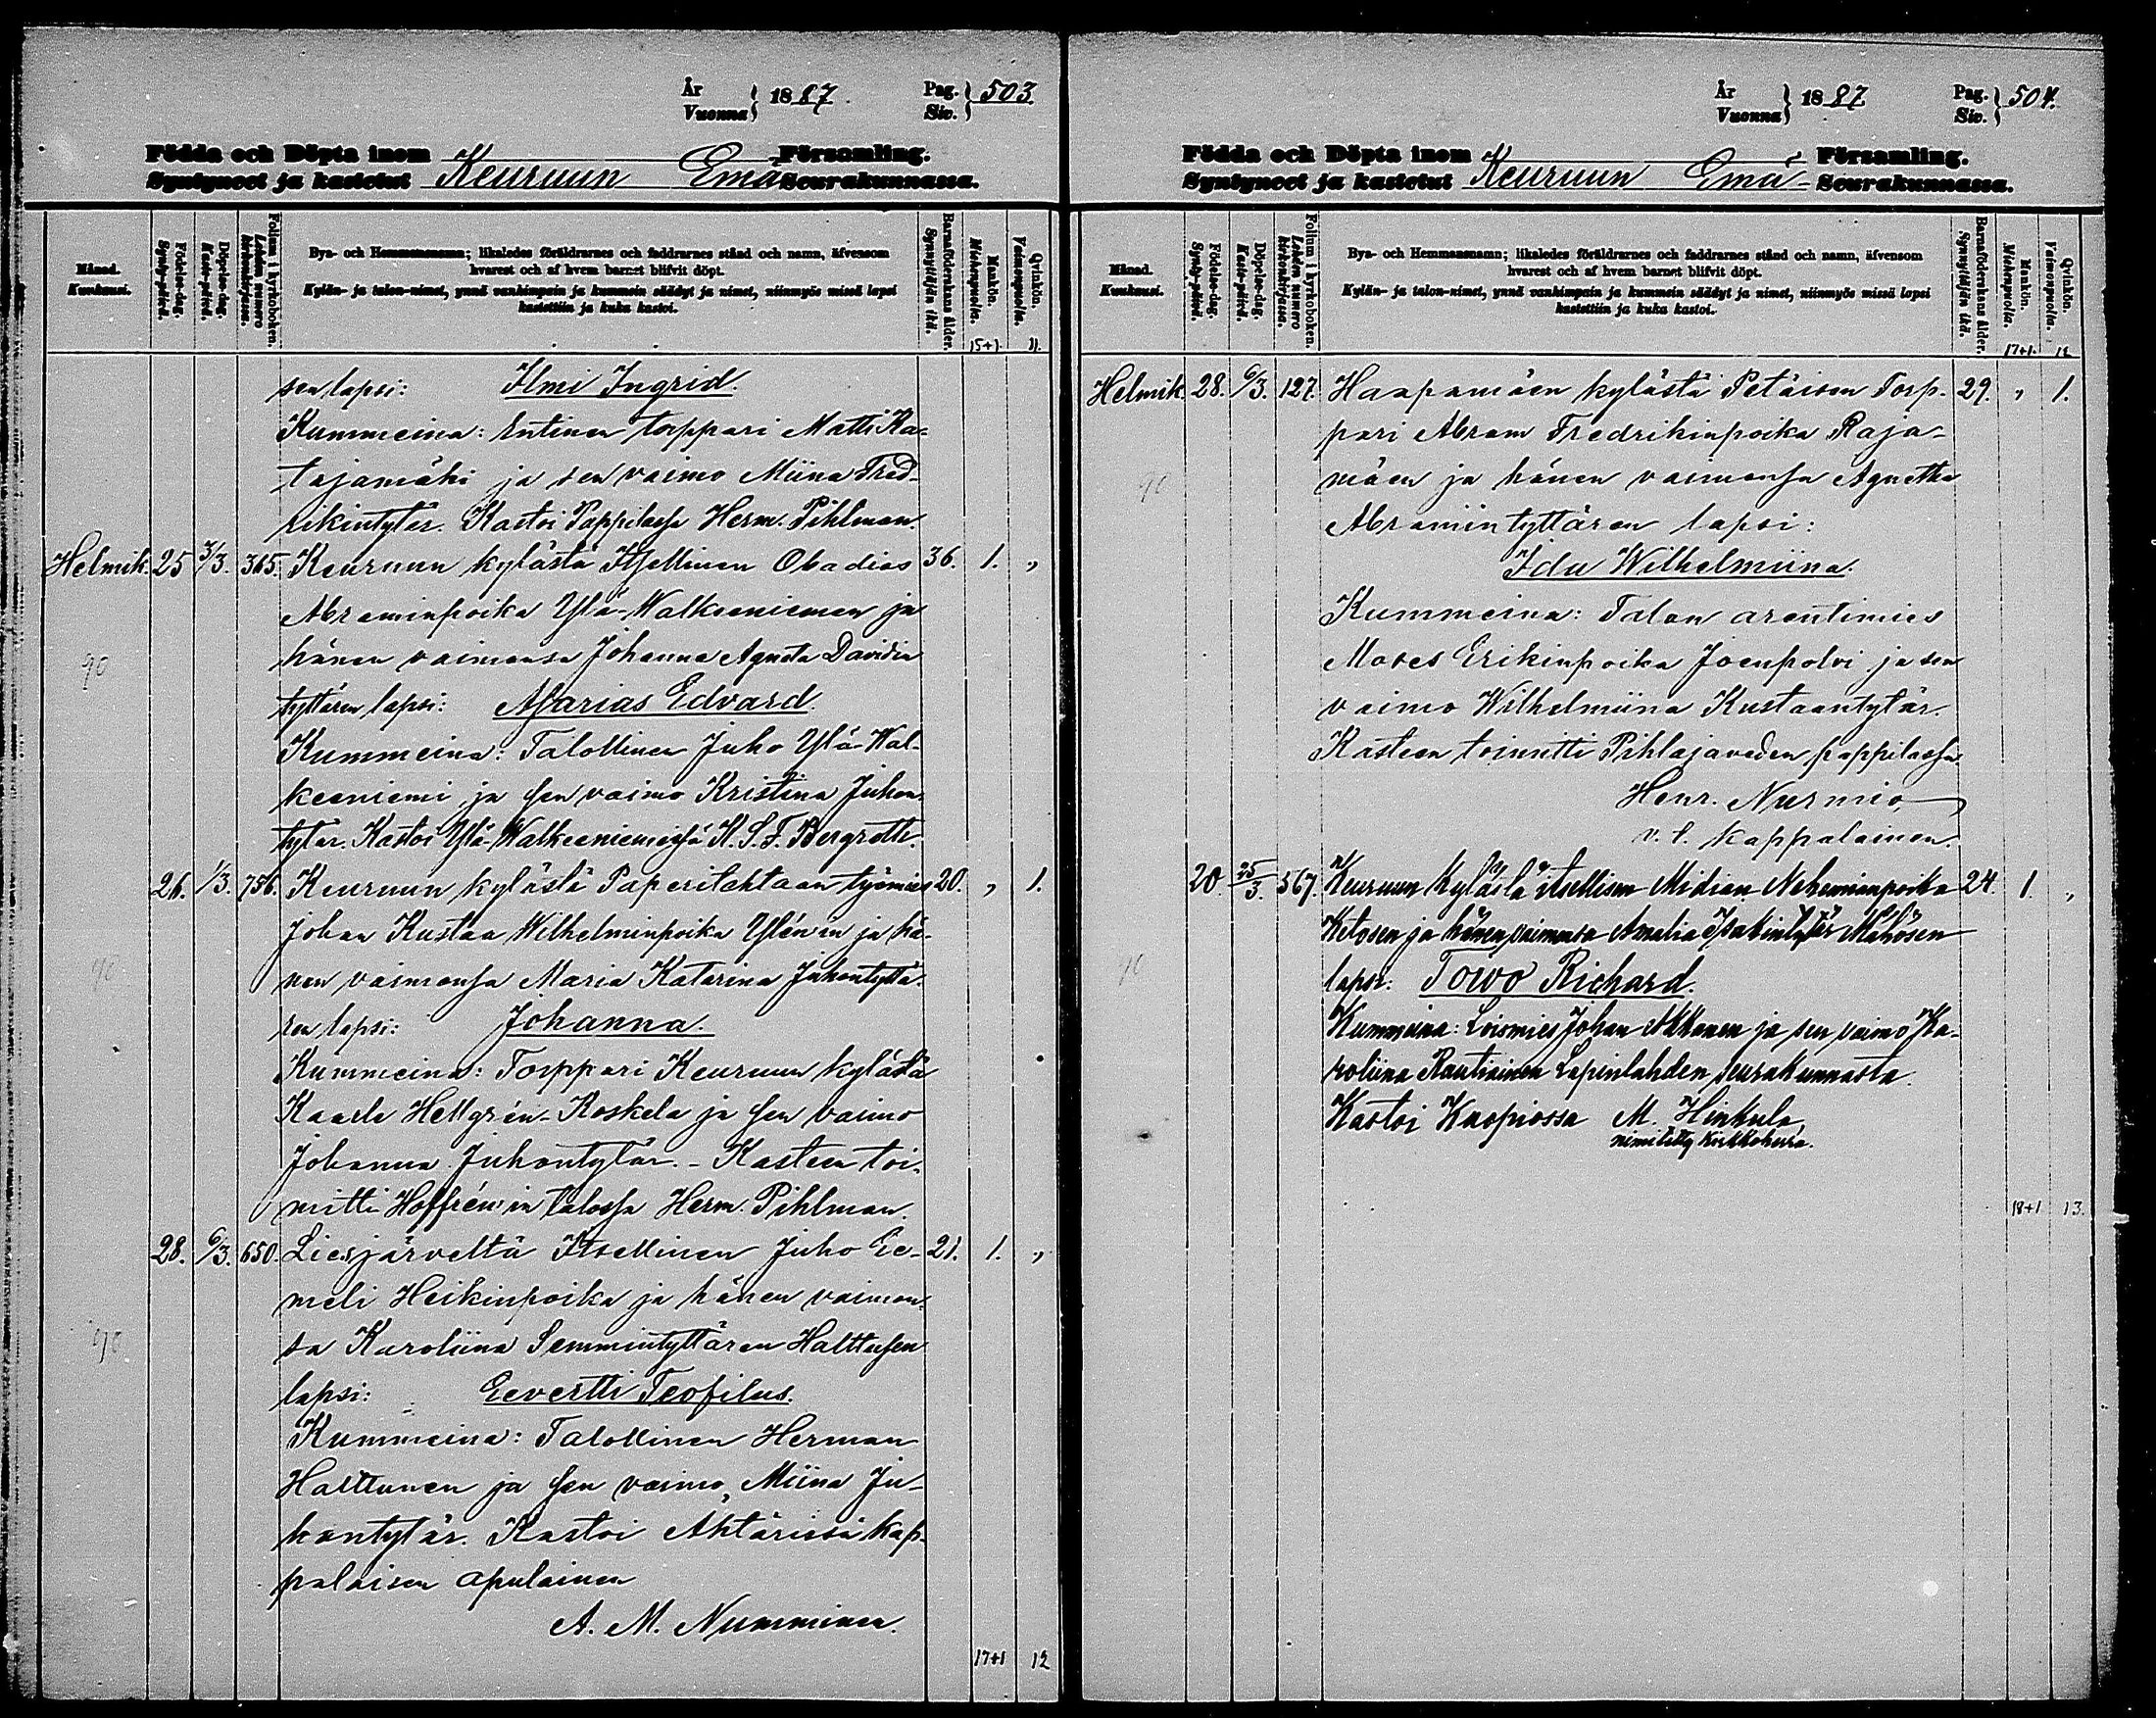 År
Vuonna } 1887. Pag.
Siv. } 503.
Födda och Döpta inom Församling.
Syntyneet ja kastetut Keuruun Emä Seurakunnassa.
Månad.
Kuukausi.
Födelse-dag.
Synty-päivä.
Döpelse-dag.
Kaste-päivä.
Folium i kyrkoboken.
Lehden numero
kirkonkirjassa.
Bya- och Hemmansnamn; likaledes föräldrarnes och faddrarnes stånd och namn, äfvensom
hvarest och af hvem barnet blifvit döpt.
Kylän- ja talon-nimet, ynnä vanhimpain ja kummein säädyt ja nimet, niinmyös missä lapsi
kastettiin ja kuka kastoi.
Barnaföderskans ålder.
Synnyttäjän ikä.
Mankön.
Miehenpuolia.
Qvinkön.
Vaimonpuolia.
15+1. 11.
sen lapsi: Ilmi Ingrid.
Kummeina: Entinen torppari Matti Ka-
tajamäki ja sen vaimo Miina Fred-
rikintytär. Kastoi Pappilassa Herm. Pihlman.
Helmik. 25 3/3. 365. Keuruun kylästä Itsellinen Obadias 36. 1. "
Abraminpoika Ylä-Walkeeniemen ja
hänen vaimonsa Johanna Agneta Davidin
tyttären lapsi: Asarias Edvard.
Kummeina: Talollinen Juho Ylä-Wal-
keeniemi ja sen vaimo Kristina Juhon-
tytär. Kastoi Ylä-Walkeeniemessä K. S. F. Bergroth.
26. 1/3. 756. Keuruun kylästä Paperitehtaan työmies 20. " 1.
Johan Kustaa Wilhelminpoika Ylén'in ja hä-
nen vaimonsa Maria Katarina Juhontyttä-
ren lapsi: Johanna.
Kummeina: Torppari Keuruun kylästä
Kaarle Hellgrén-Koskela ja sen vaimo
Johanna Juhontytär. - Kasteen toi-
mitti Hoffrén'in talossa Herm. Pihlman.
28. 6/3. 650. Liesjärveltä Itsellinen Juho Ee- 21. 1. "
meli Heikinpoika ja hänen vaimon-
sa Karoliina Semmintyttären Halttusen
lapsi: Eevertti Teofilus.
Kummeina: Talollinen Herman
Halttunen ja sen vaimo, Miina Ju-
hontytär. Kastoi Ähtärissä kap-
palaisen apulainen
A. M. Numminen.
17+1 12
År
Vuonna } 1887 Pag.
Siv. } 504.
Födda och Döpta inom Församling.
Syntyneet ja kastetut Keuruun Emä- Seurakunnassa.
Månad.
Kuukausi.
Födelse-dag.
Synty-päivä.
Döpelse-dag.
Kaste-päivä.
Folium i kyrkoboken.
Lehden numero
kirkonkirjassa.
Bya- och Hemmansnamn; likaledes föräldrarnes och faddrarnes stånd och namn, äfvensom
hvarest och af hvem barnet blifvit döpt.
Kylän- ja talon-nimet, ynnä vanhimpain ja kummein säädyt ja nimet, niinmyös missä lapsi
kastettiin ja kuka kastoi.
Barnaföderskans ålder.
Synnyttäjän ikä.
Mankön.
Miehenpuolia.
Qvinkön.
Vaimonpuolia.
17+1. 12
Helmik. 28. 6/3. 127. Haapamäen kylästä Petäisen Torp- 29. " 1.
pari Abram Fredrikinpoika Raja-
mäen ja hänen vaimonsa Agnetha
Abramintyttären lapsi:
Ida Wilhelmiina.
Kummeina: Talon arentimies
Moses Erikinpoika Joenpolvi ja sen
vaimo Wilhelmiina Kustaantytär.
Kasteen toimitti Pihlajaveden pappilassa
Henr. Nurmio,
v. t. kappalainen.
20. 25/3. 567. Keuruun kylästä itsellisen Midian Nehemianpoika 24. 1. "
Ketosen ja hänen vaimonsa Amalia Isakintytär Mähösen
lapsi: Toivo Richard.
Kummeina: Loismies Johan Akkanen ja sen vaimo Ka-
roliina Rautiainen Lapinlahden seurakunnasta.
Kastoi Kuopiossa M. Hinkula,
nimitetty Kirkkoherra.
18+1 13.